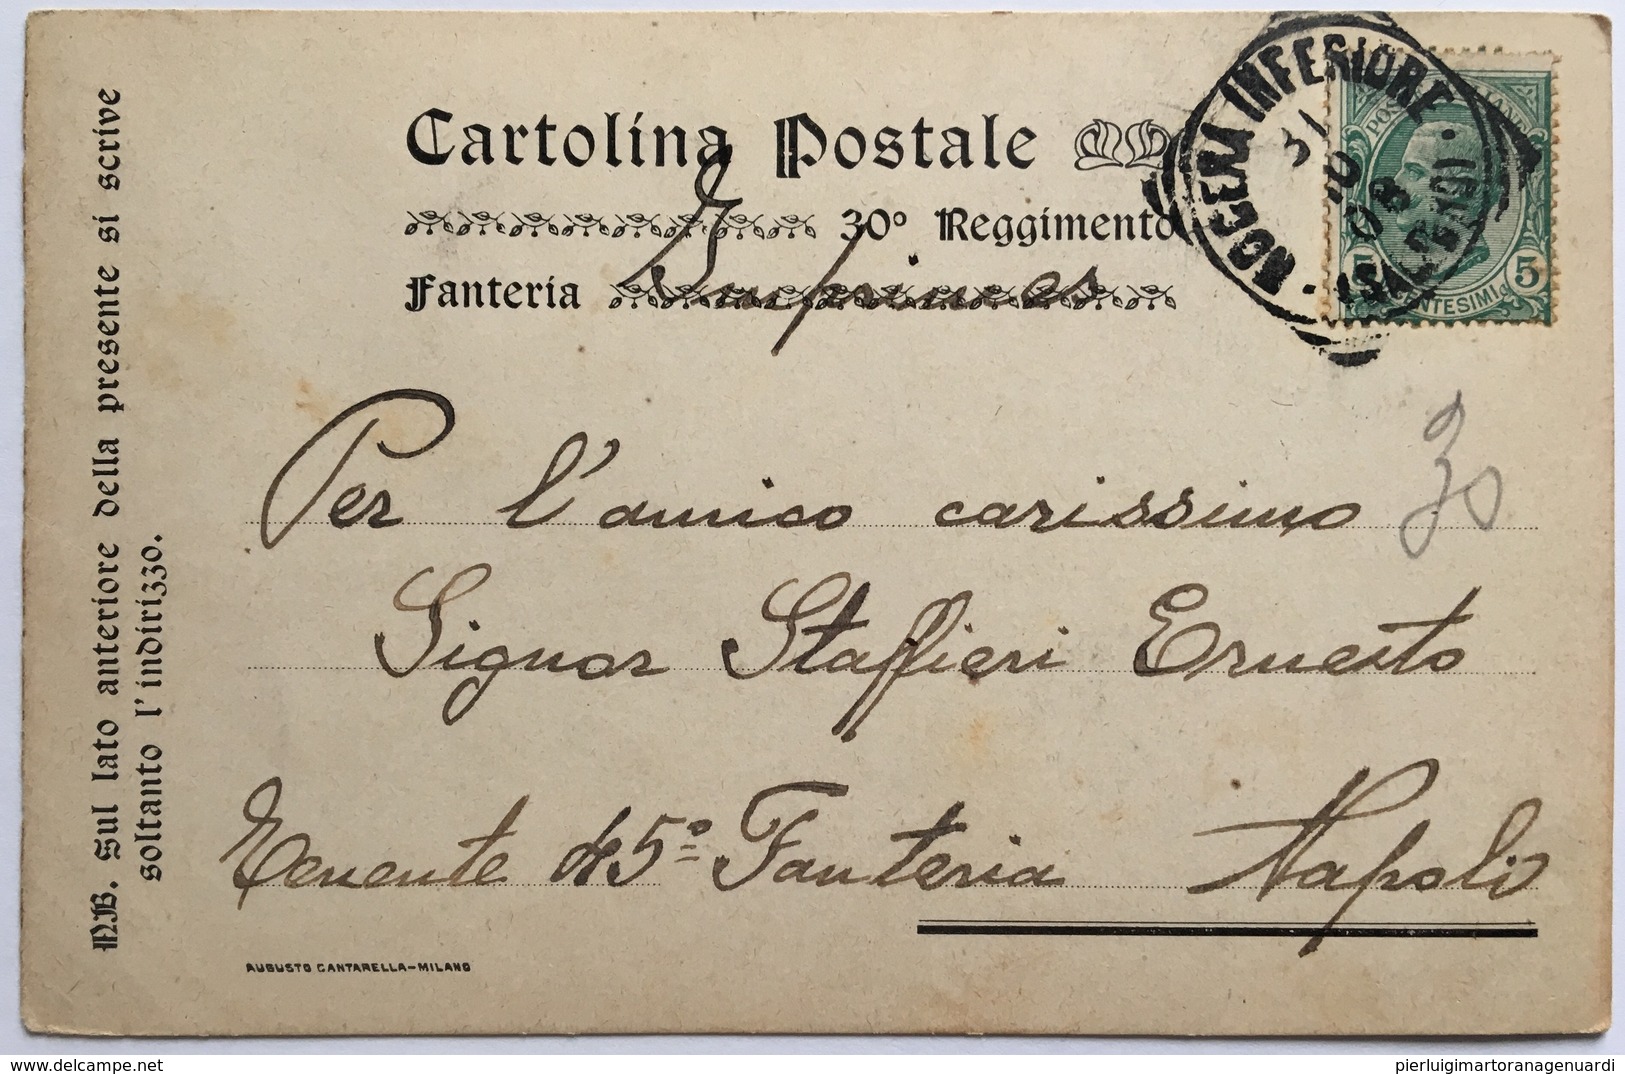 Cartolina Postale
30º Reggimento
Fanteria
NB. Sul lato anteriore della presente si scrive
soltanto l'indirizzo.
NOCERA INFERIORE
(SALERNO)
31
10
08
POSTE ITALIANE
5 CENTESIMI 5
Per l'amico carissimo
30
Signor Staffieri Ernesto
Tenente 45º Fanteria Napoli
AUGUSTO CANTARELLA-MILANO
pierluigimartoranagenuardi